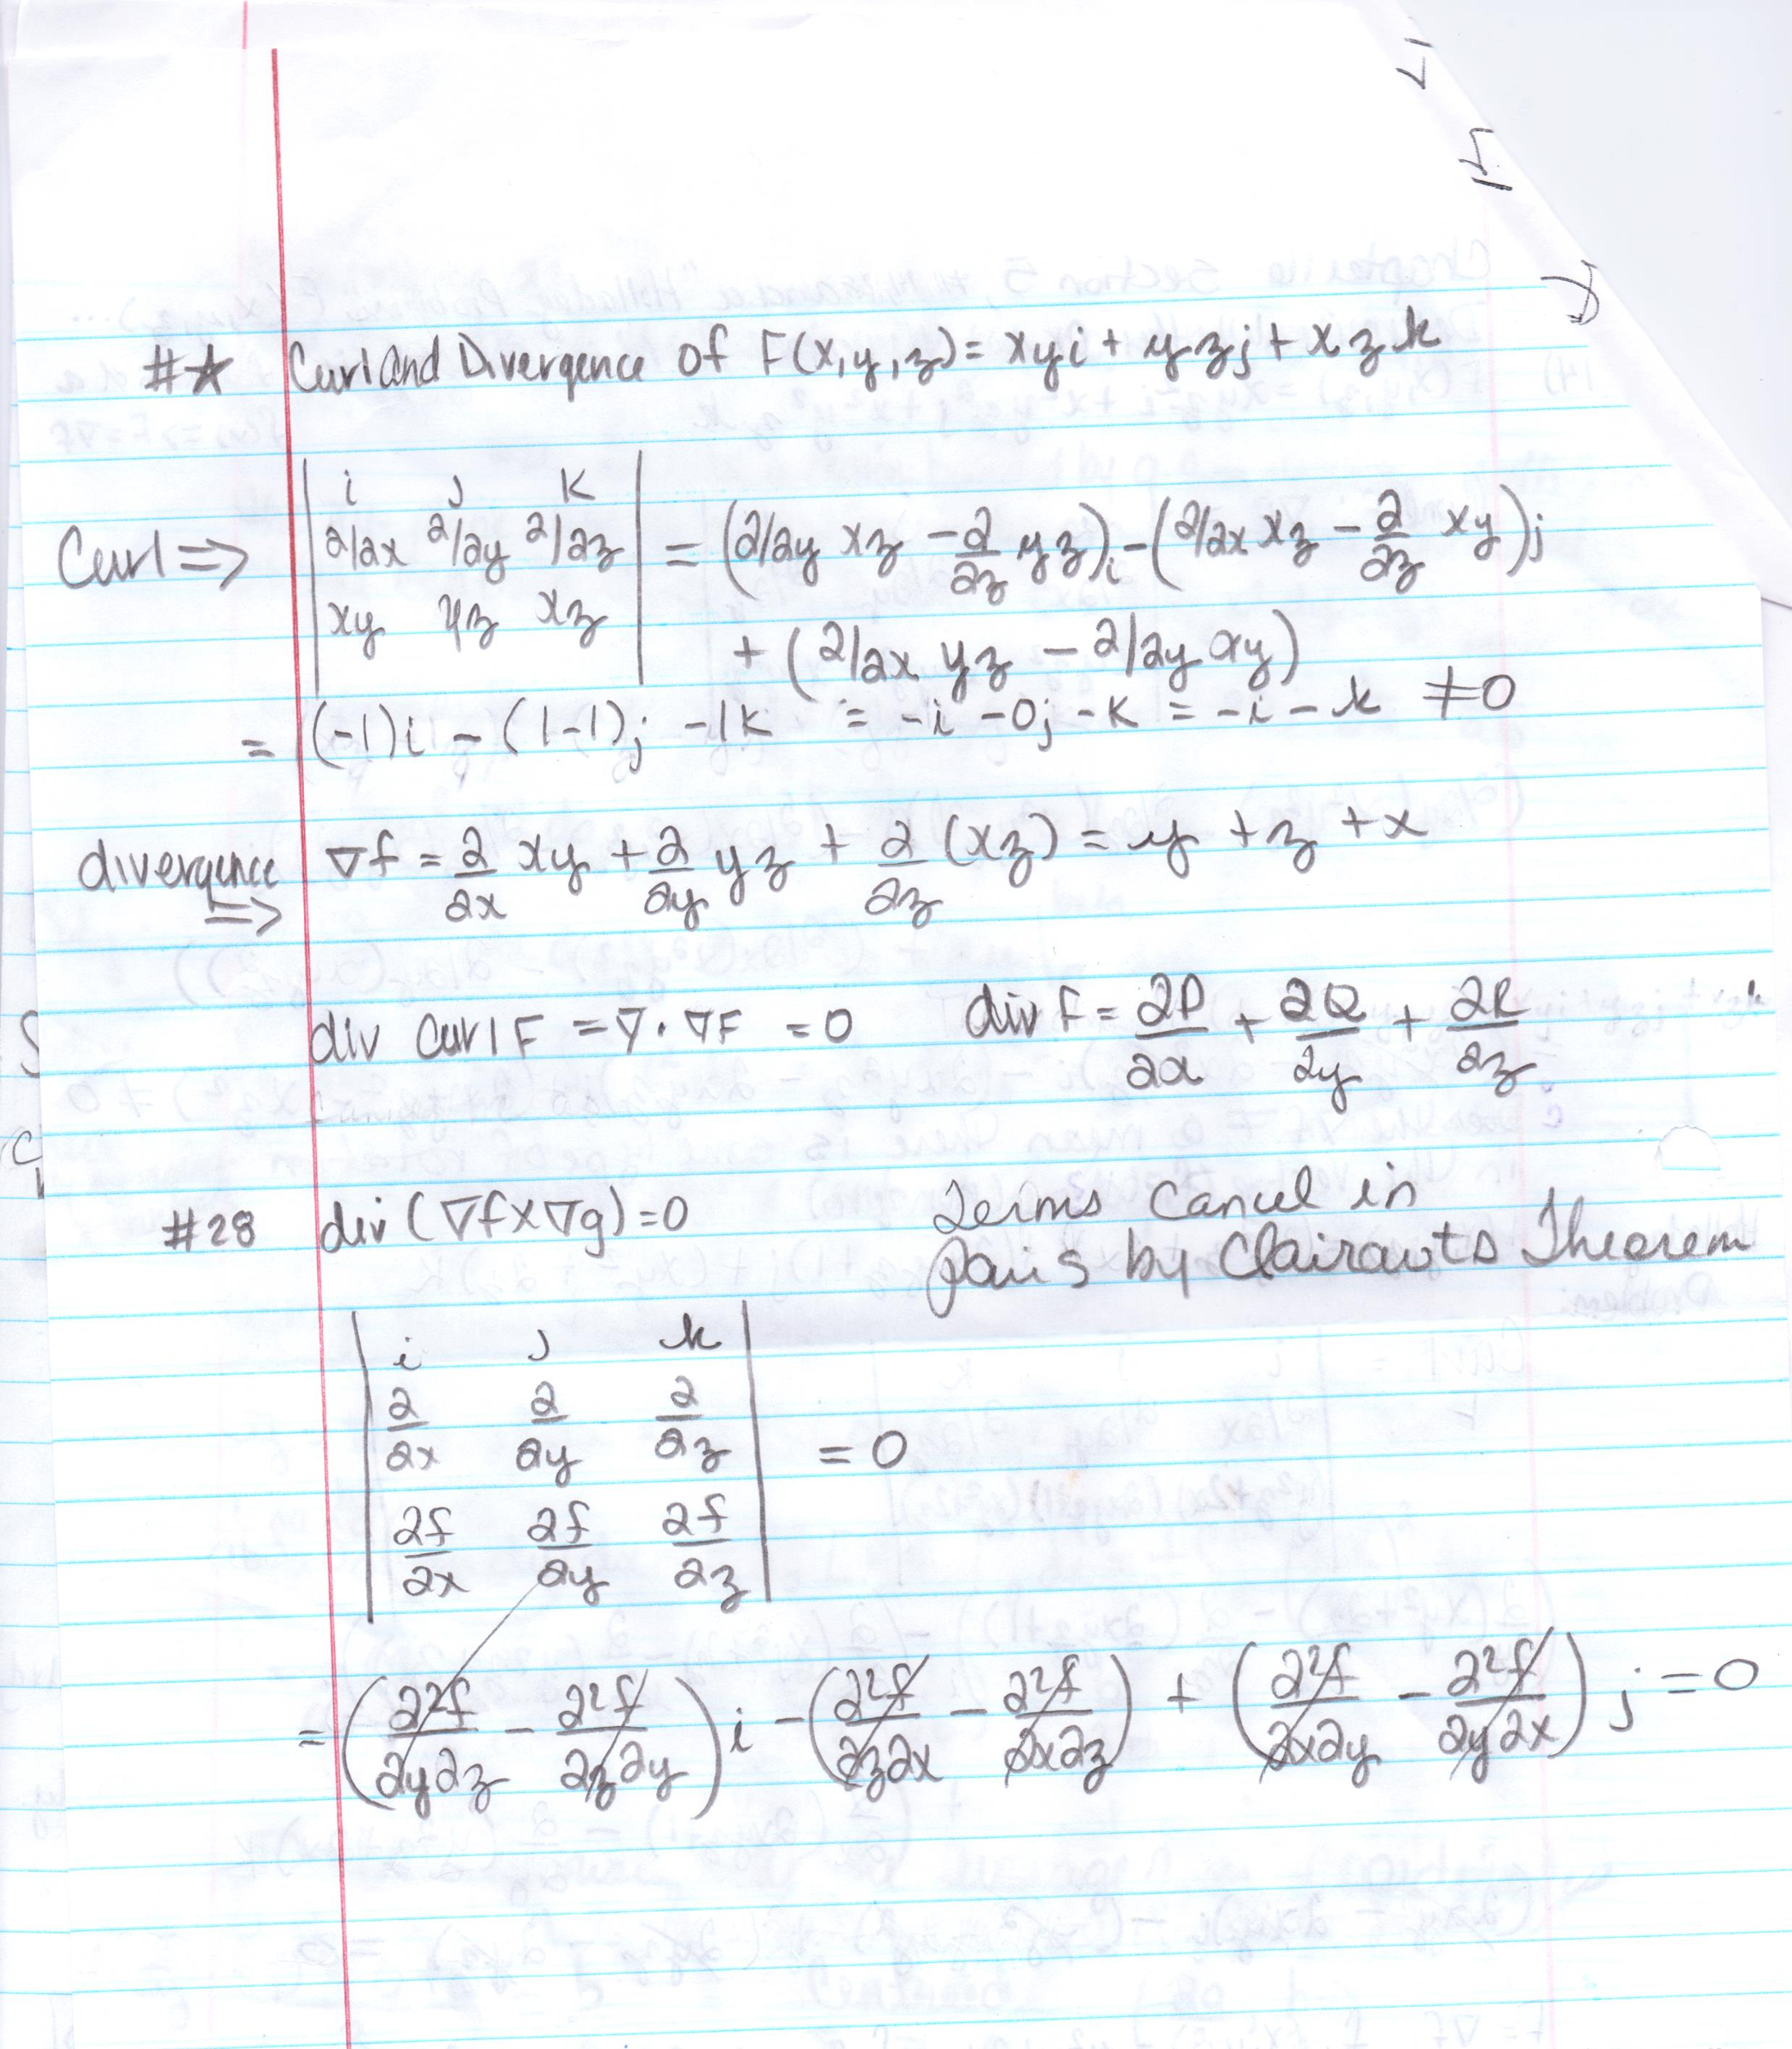 #☆ Curl and Divergence of F(x,y,z)= xyi + yzj + xzk
i j k
Curl => ∂/∂x ∂/∂y ∂/∂z = (∂/∂y xz - ∂/∂z yz)i - (∂/∂x xz - ∂/∂z xy)j
xy yz xz + (∂/∂x yz - ∂/∂y xy)
= (-1)i - (1-1)j -1k = -i -0j -K = -i - k ≠0
divergence => ∇f = ∂/∂x xy + ∂/∂y yz + ∂/∂z (xz) = y + z + x
div curl F = ∇·∇F = 0 div F = ∂P/∂x + ∂Q/∂y + ∂R/∂z
#28 div (∇f×∇g)=0 Terms Cancel in
pairs by Clairauts Theorem
i j k
∂/∂x ∂/∂y ∂/∂z = 0
∂f/∂x ∂f/∂y ∂f/∂z
= (∂²f/∂y∂z - ∂²f/∂z∂y)i - (∂²f/∂z∂x - ∂²f/∂x∂z) + (∂²f/∂x∂y - ∂²f/∂y∂x)j = 0